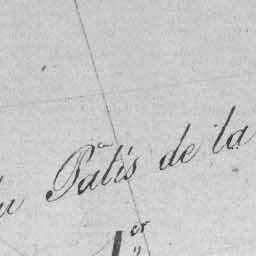 du Patis de la
1er